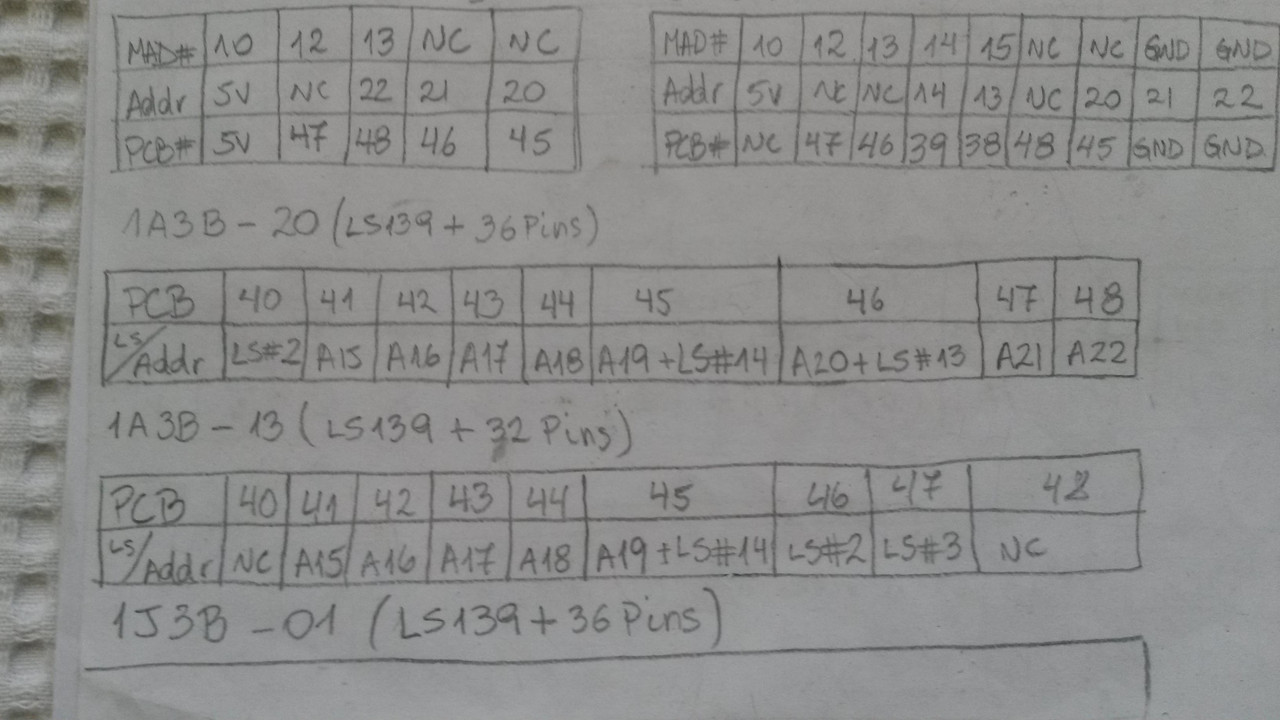 MAD# 10 12 13 NC NC
Addr 5V NC 22 21 20
PCB# 5V 47 48 46 45
MAD# 10 12 13 14 15 NC NC GND GND
Addr 5V NC NC 14 13 NC 20 21 22
PCB# NC 47 46 39 38 48 45 GND GND
1A3B - 20 (LS139 + 36 Pins)
PCB 40 41 42 43 44 45 46 47 48
LS/Addr LS#2 A15 A16 A17 A18 A19 + LS#14 A20 + LS#13 A21 A22
1A3B - 13 (LS139 + 32 Pins)
PCB 40 41 42 43 44 45 46 47 48
LS/Addr NC A15 A16 A17 A18 A19 + LS#14 LS#2 LS#3 NC
1J3B - 01 (LS139 + 36 Pins)